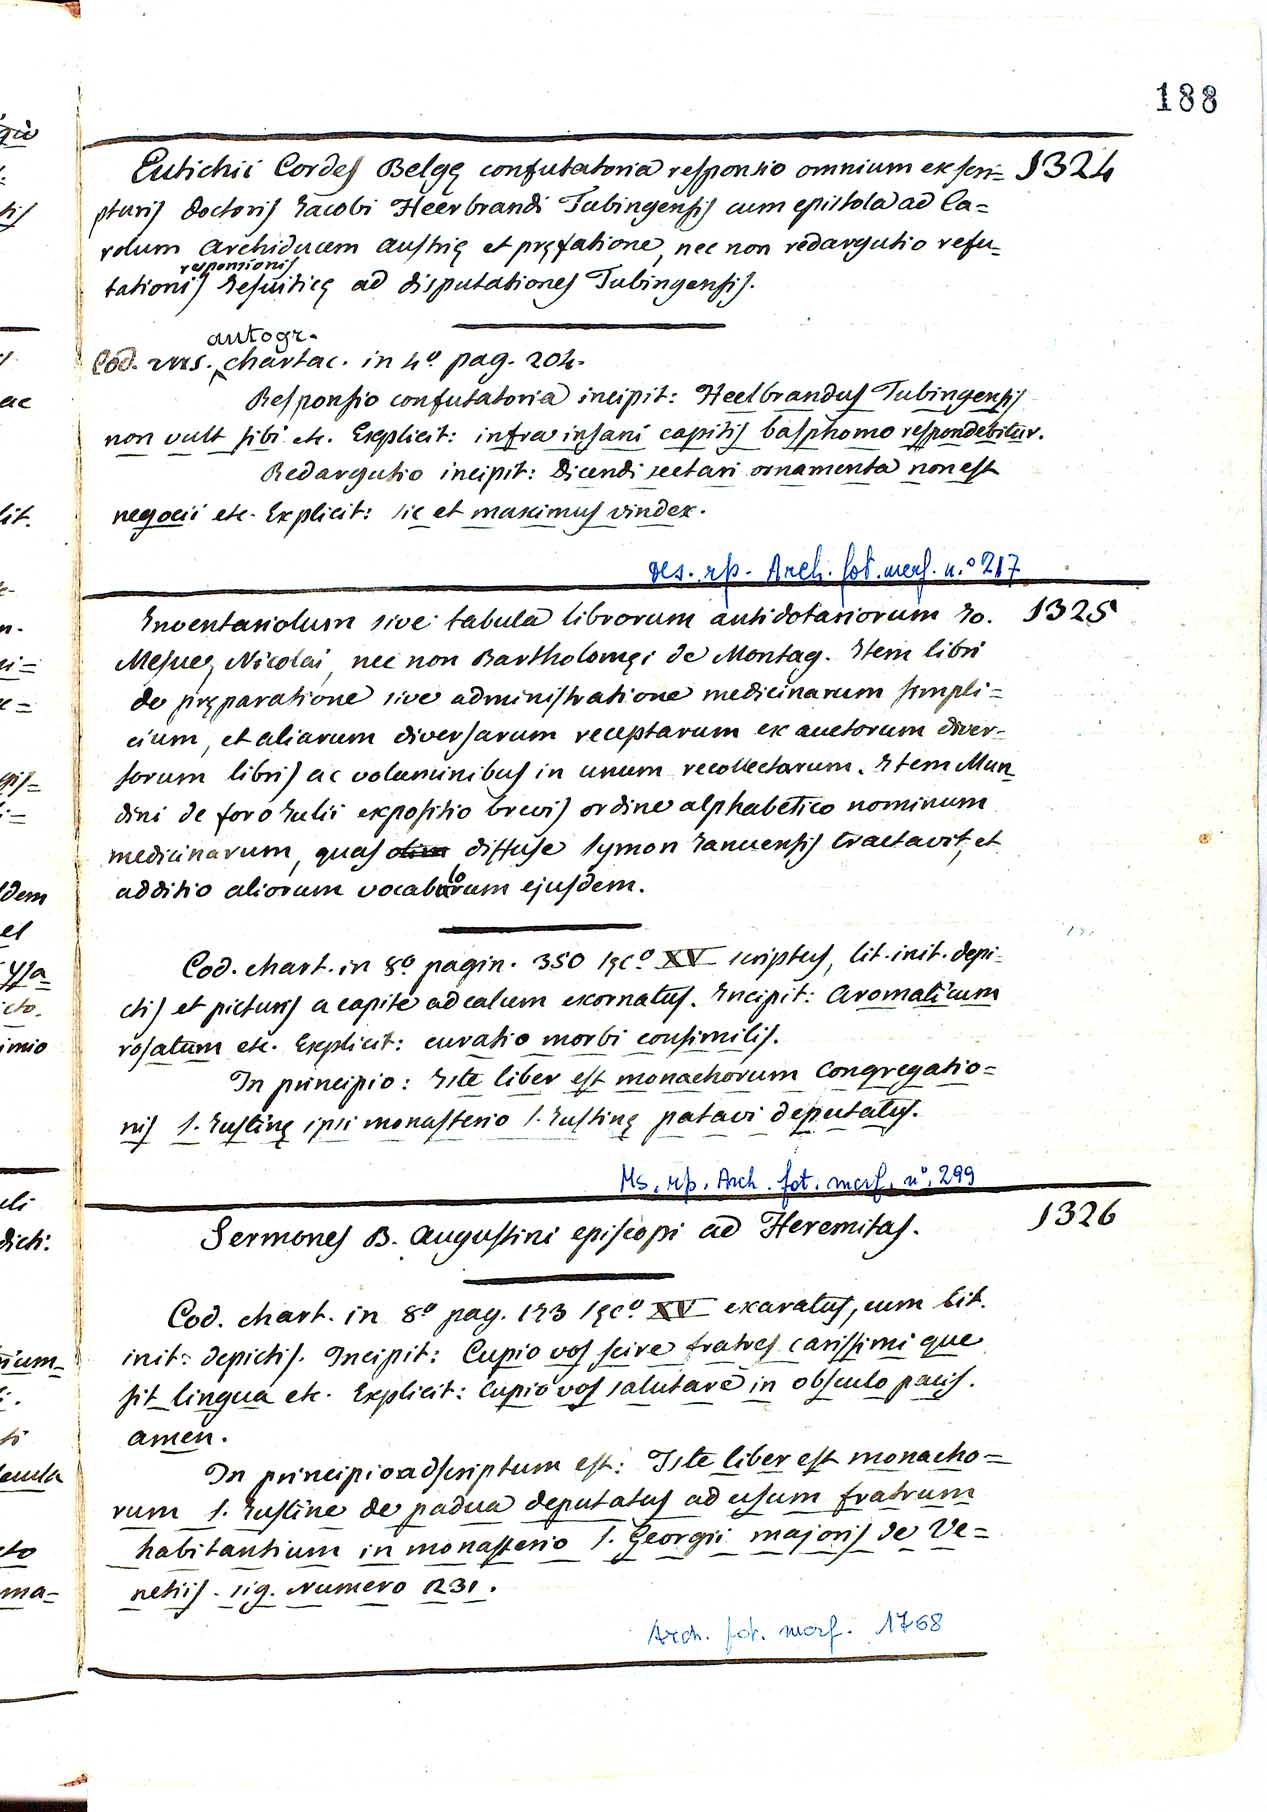 188
Eutichii Cordes Belgę confutatoria responsio omnium ex scri= 1324
pturis doctoris Jacobi Heerbrandi Tubingensis cum epistola ad Ca=
rolum Archiducem Austrię et pręfatione, nec non redargutio refu=
responsionis
tationis Jesuiticę ad disputationes Tubingensis.
autogr.
Cod. mss. chartac. in 4º pag. 204.
Responsio confutatoria incipit: Heelbrandus Tubingensis
non vult sibi etc. Explicit: infra insani capitis basphomo respondebitur.
Redargutio incipit: Dicendi sectari ornamenta non est
negocii etc. Explicit: sic et maximus vindex.
Ms. rp. Arch. fot. marf. n.º 217
Inventariolum sive tabula librorum antidotariorum Jo. 1325
Mesueę Nicolai, nec non Bartholomęi de Montag. Item libri
de pręparatione sive administratione medicinarum simpli=
cium, et aliarum diversarum receptarum ex auctorum diver=
sorum libris ac voluminibus in unum recollectarum. Item Mun=
dini de foro Julii expositio brevis ordine alphabetico nominum
medicinarum, quas diffuse Symon Januensis tractavit, et
additio aliorum vocabulorum ejusdem.
Cod. chart. in 8º pagin. 350 sęcº XV scriptus, lit. init. depi=
ctis et picturis a capite ad calcem exornatus. Incipit: Aromaticum
rosatum etc. Explicit: curatio morbi consimilis.
In principio: Iste liber est monachorum Congregatio=
nis S. Justinę ipsi monasterio S. Justinę patavi deputatus.
Ms. rp. Arch. fot. marf. nº. 299
Sermones B. Augustini episcopi ad Heremitas. 1326
Cod. chart. in 8º pag. 193 sęcº XV exaratus, cum lit.
init: depictis. Incipit: Cupio vos scire fratres carissimi que
sit lingua etc. Explicit: Cupio vos salutare in obsculo pacis.
amen.
In principio adscriptum est: Iste liber est monacho=
rum S. Justine de padua deputatus ad usum fratrum
habitantium in monasterio S. Georgii majoris de Ve=
netiis. sig. Numero 1231.
Arch. fot. marf. 1768